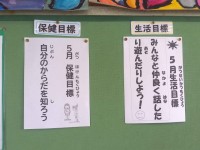 生活目標
5月生活目標
みんなと仲良く話した
り遊んだりしよう!
保健目標
5月 保健目標
自分のからだを知ろう